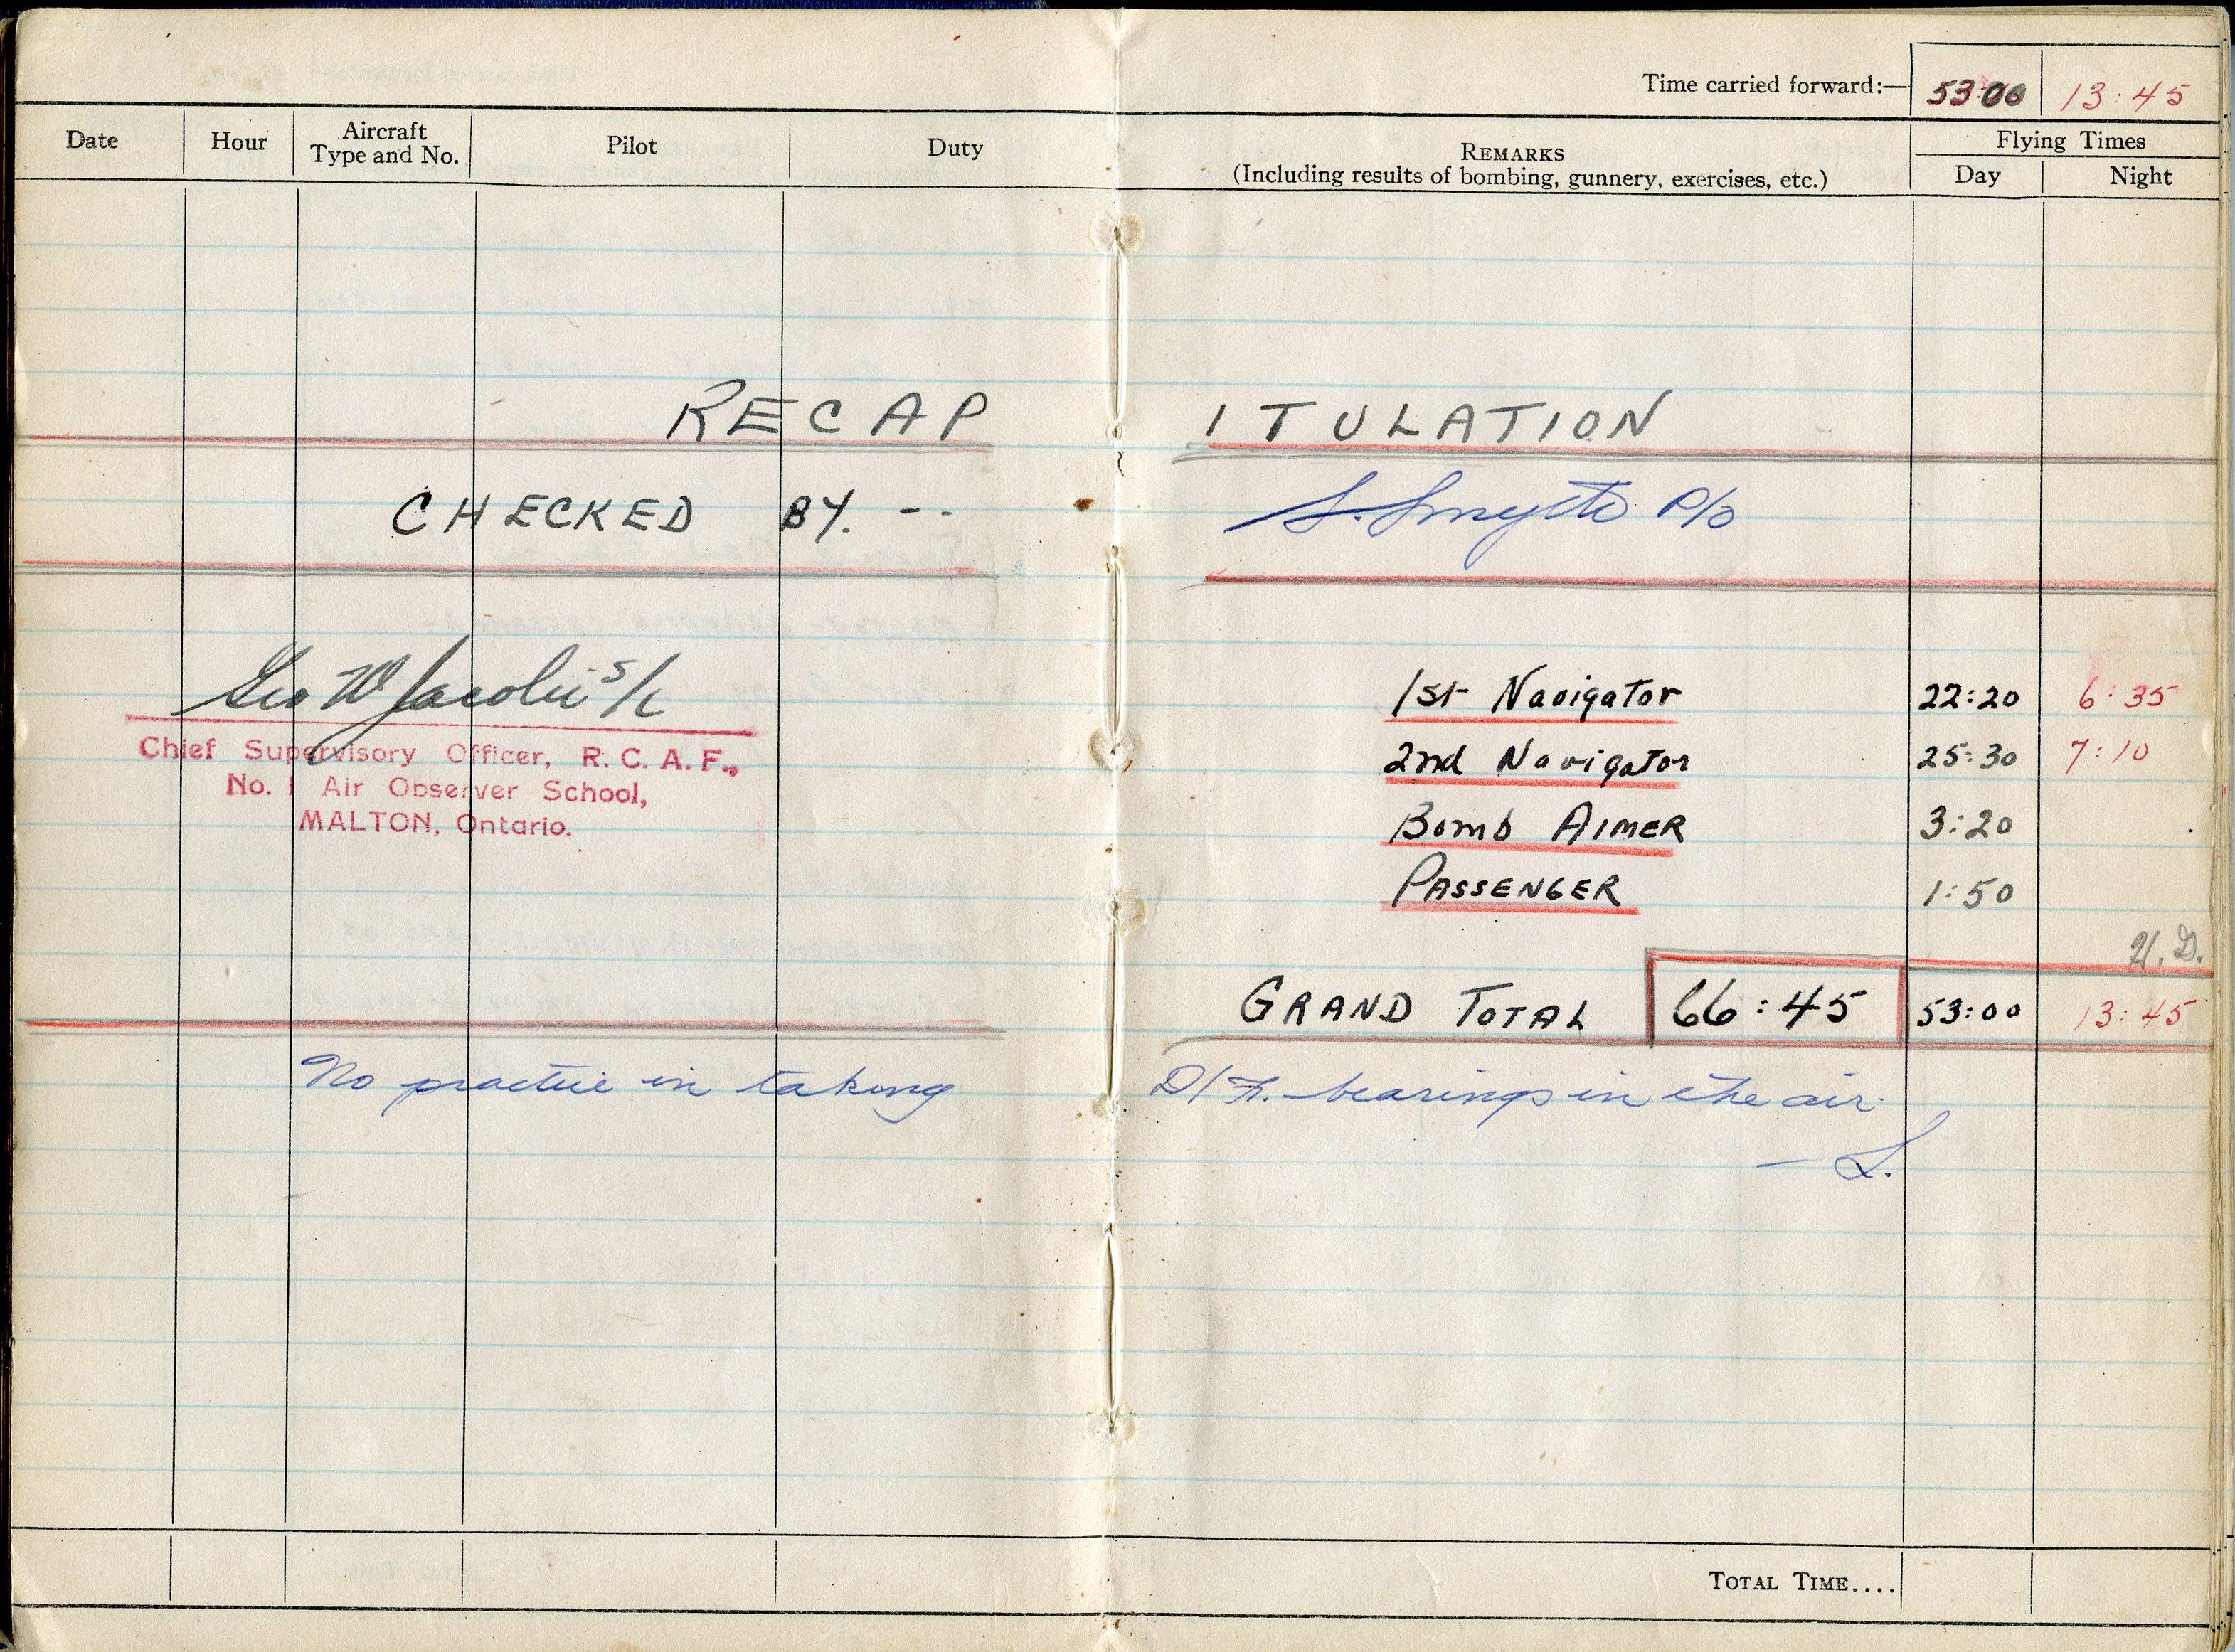 Time carried forward:— 53:00 13:45
Date Hour Aircraft Type and No. Pilot Duty REMARKS (Including results of bombing, gunnery, exercises, etc.) Flying Times Day Night
RECAP ITULATION
CHECKED BY. -- S. Smyth P/O
Geo W Jacobi S/L
Chief Supervisory Officer, R. C. A. F.,
No. 1 Air Observer School,
MALTON, Ontario.
1st Navigator 22:20 6:35
2nd Navigator 25:30 7:10
Bomb AIMER 3:20
PASSENGER 1:50
GRAND TOTAL 66:45 53:00 13:45
No practice in taking D/F. bearings in the air.
— S.
TOTAL TIME....